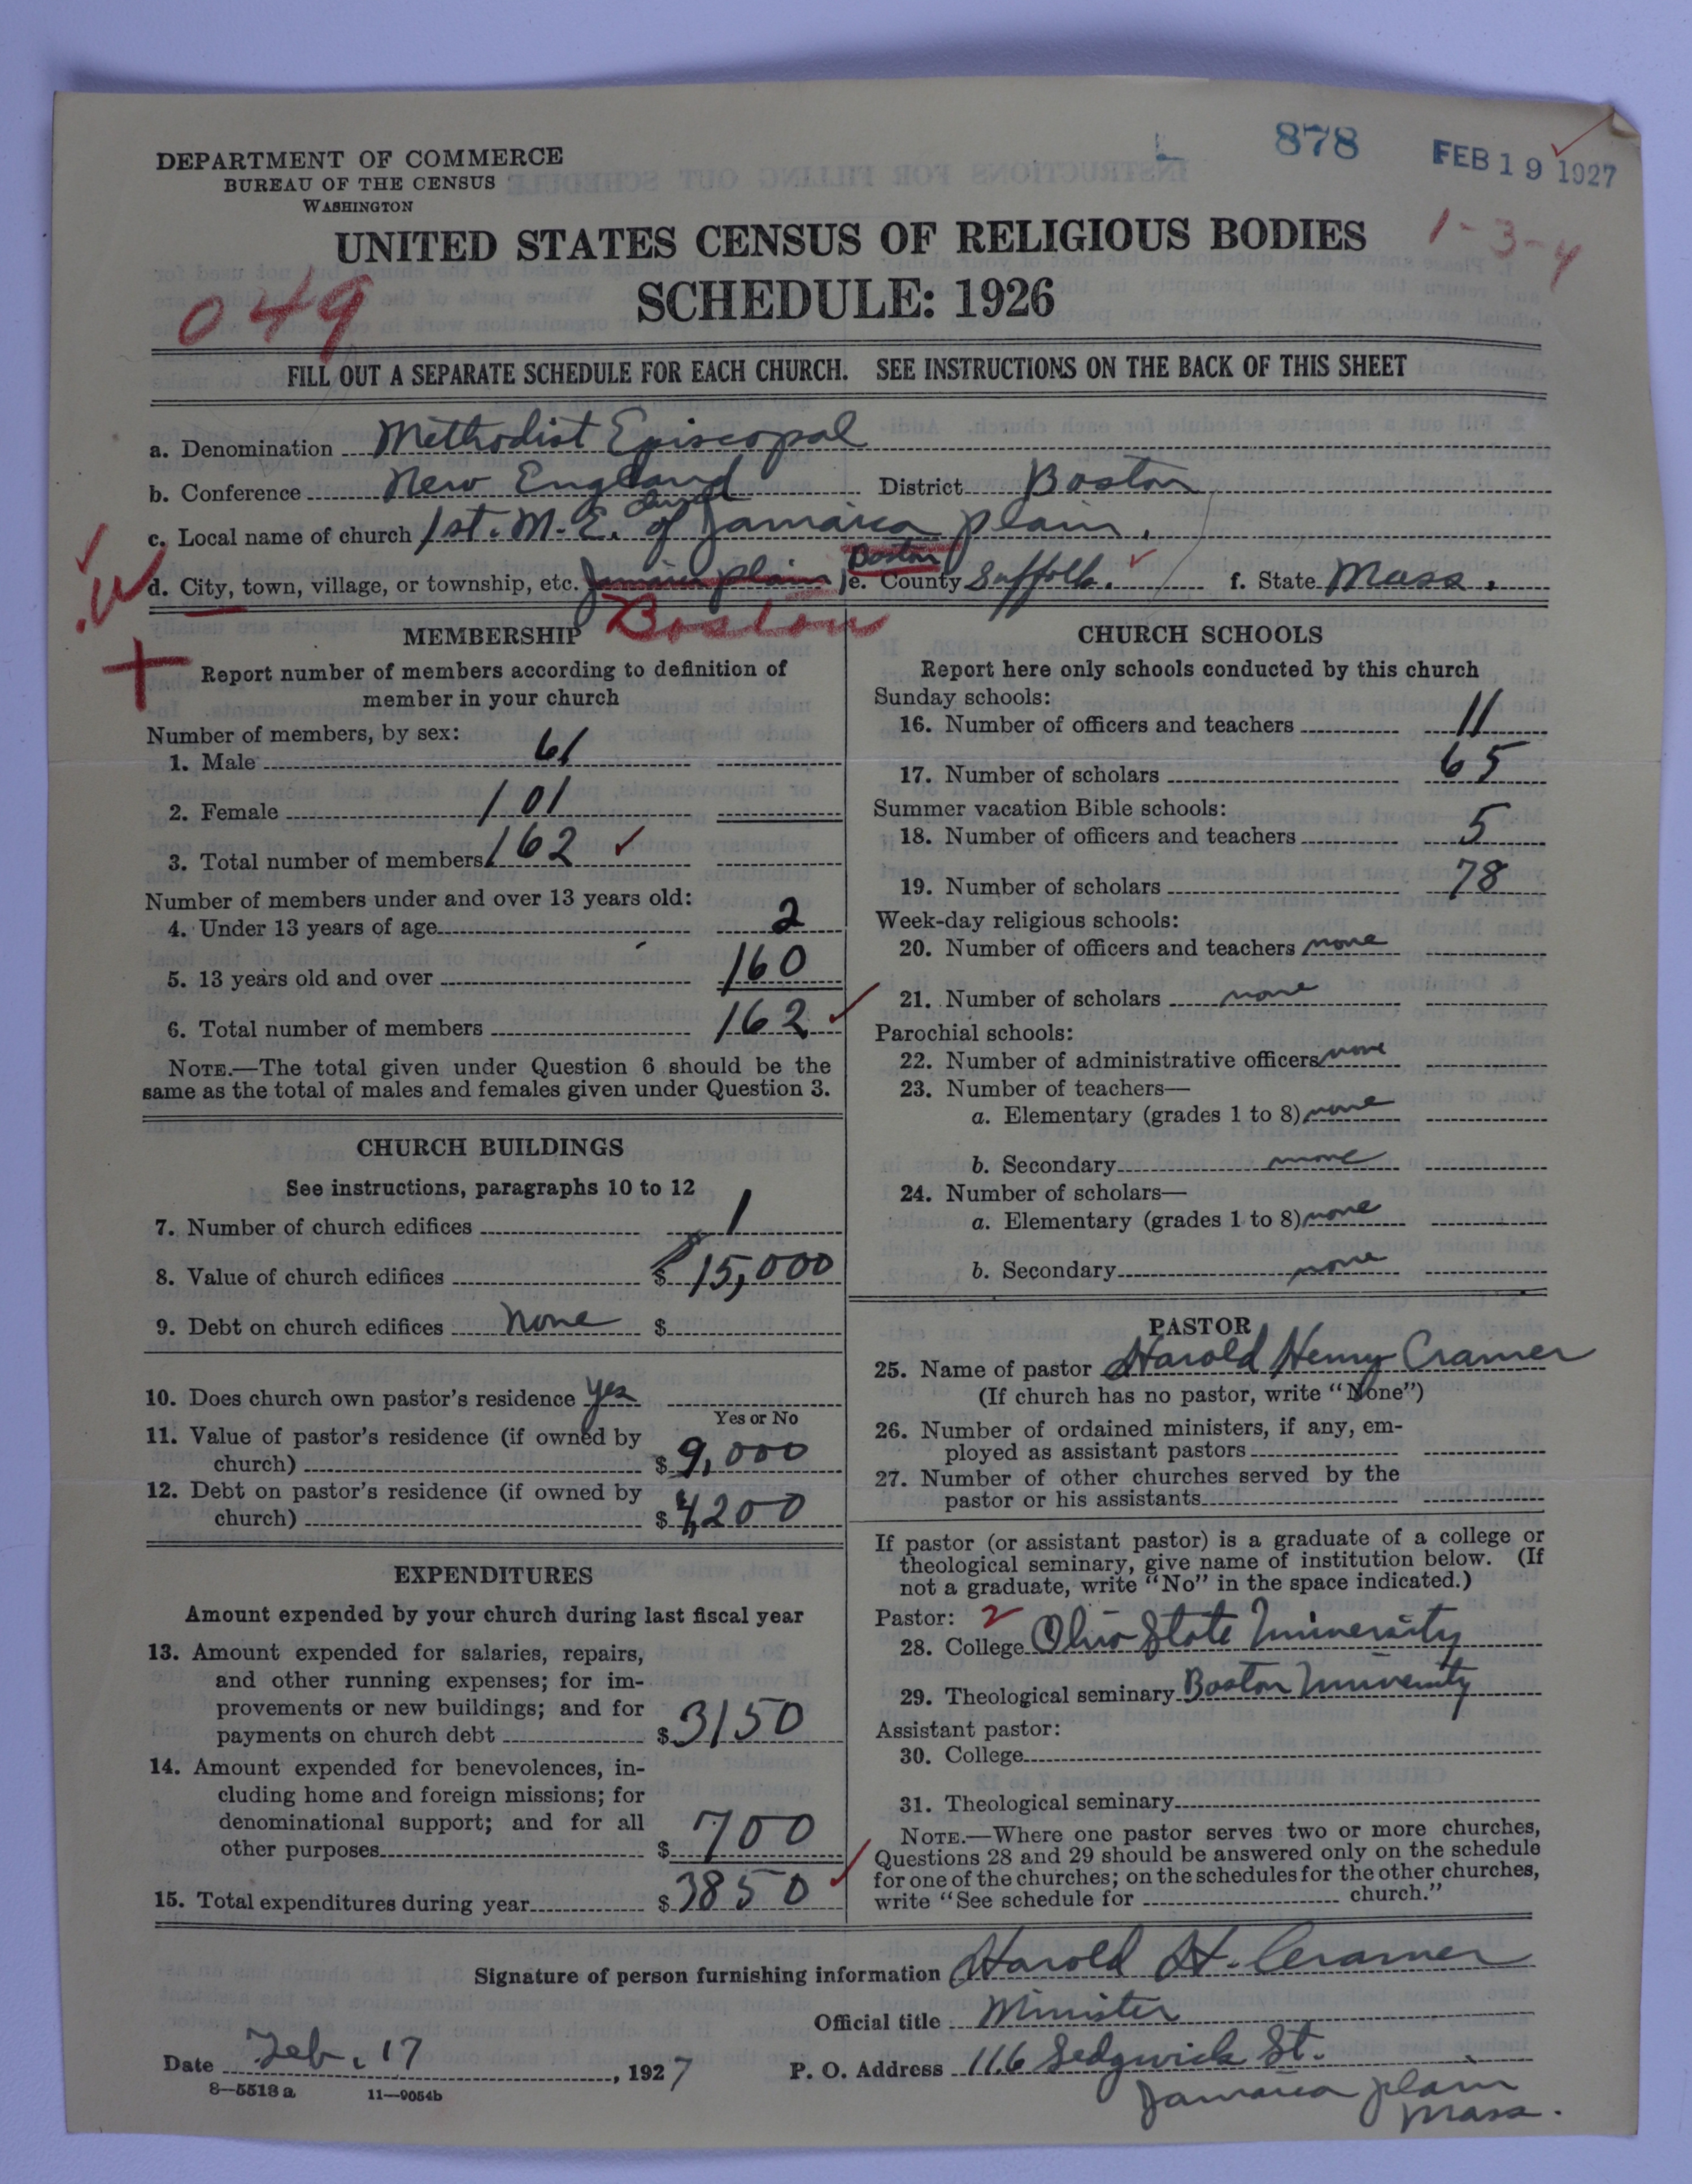 878
FEB 19 1927
DEPARTMENT OF COMMERCE
BUREAU OF THE CENSUS
WASHINGTON
1-3-4
UNITED STATES CENSUS OF RELIGIOUS BODIES
SCHEDULE: 1926
049
FILL OUT A SEPARATE SCHEDULE FOR EACH CHURCH. SEE INSTRUCTIONS ON THE BACK OF THIS SHEET
a. Denomination Methodist Episcopal
b. Conference New England District Boston
c. Local name of church 1st. M. E. church of Jamaica plain.
d. City, town, village, or township, etc. Jamaica plain Boston e. County Suffolk. f. State Mass.
Boston
MEMBERSHIP
Report number of members according to definition of
member in your church
Number of members, by sex:
1. Male 61
2. Female 101
3. Total number of members 162
Number of members under and over 13 years old:
4. Under 13 years of age 2
5. 13 years old and over 160
6. Total number of members 162
NOTE.—The total given under Question 6 should be the
same as the total of males and females given under Question 3.
CHURCH BUILDINGS
See instructions, paragraphs 10 to 12
7. Number of church edifices 1
8. Value of church edifices $ 15,000
9. Debt on church edifices none $
10. Does church own pastor's residence yes
Yes or No
11. Value of pastor's residence (if owned by
church) $ 9,000
12. Debt on pastor's residence (if owned by
church) $ 4,200
EXPENDITURES
Amount expended by your church during last fiscal year
13. Amount expended for salaries, repairs,
and other running expenses; for im-
provements or new buildings; and for
payments on church debt $ 3150
14. Amount expended for benevolences, in-
cluding home and foreign missions; for
denominational support; and for all
other purposes $ 700
15. Total expenditures during year $ 3850
CHURCH SCHOOLS
Report here only schools conducted by this church
Sunday schools:
16. Number of officers and teachers 11
17. Number of scholars 65
Summer vacation Bible schools:
18. Number of officers and teachers 5
19. Number of scholars 78
Week-day religious schools:
20. Number of officers and teachers none
21. Number of scholars none
Parochial schools:
22. Number of administrative officers none
23. Number of teachers—
a. Elementary (grades 1 to 8) none
b. Secondary none
24. Number of scholars—
a. Elementary (grades 1 to 8) none
b. Secondary none
PASTOR
25. Name of pastor Harold Henry Cramer
(If church has no pastor, write "None")
26. Number of ordained ministers, if any, em-
ployed as assistant pastors
27. Number of other churches served by the
pastor or his assistants
If pastor (or assistant pastor) is a graduate of a college or
theological seminary, give name of institution below. (If
not a graduate, write "No" in the space indicated.)
Pastor: 2
28. College Ohio State University
29. Theological seminary Boston University
Assistant pastor:
30. College
31. Theological seminary
NOTE.—Where one pastor serves two or more churches,
Questions 28 and 29 should be answered only on the schedule
for one of the churches; on the schedules for the other churches,
write "See schedule for church."
Signature of person furnishing information Harold H. Cramer
Official title Minister
Date Feb. 17, 1927 P. O. Address 116 Sedgwick St.
Jamaica plain
Mass.
8—5518 a 11—9054b